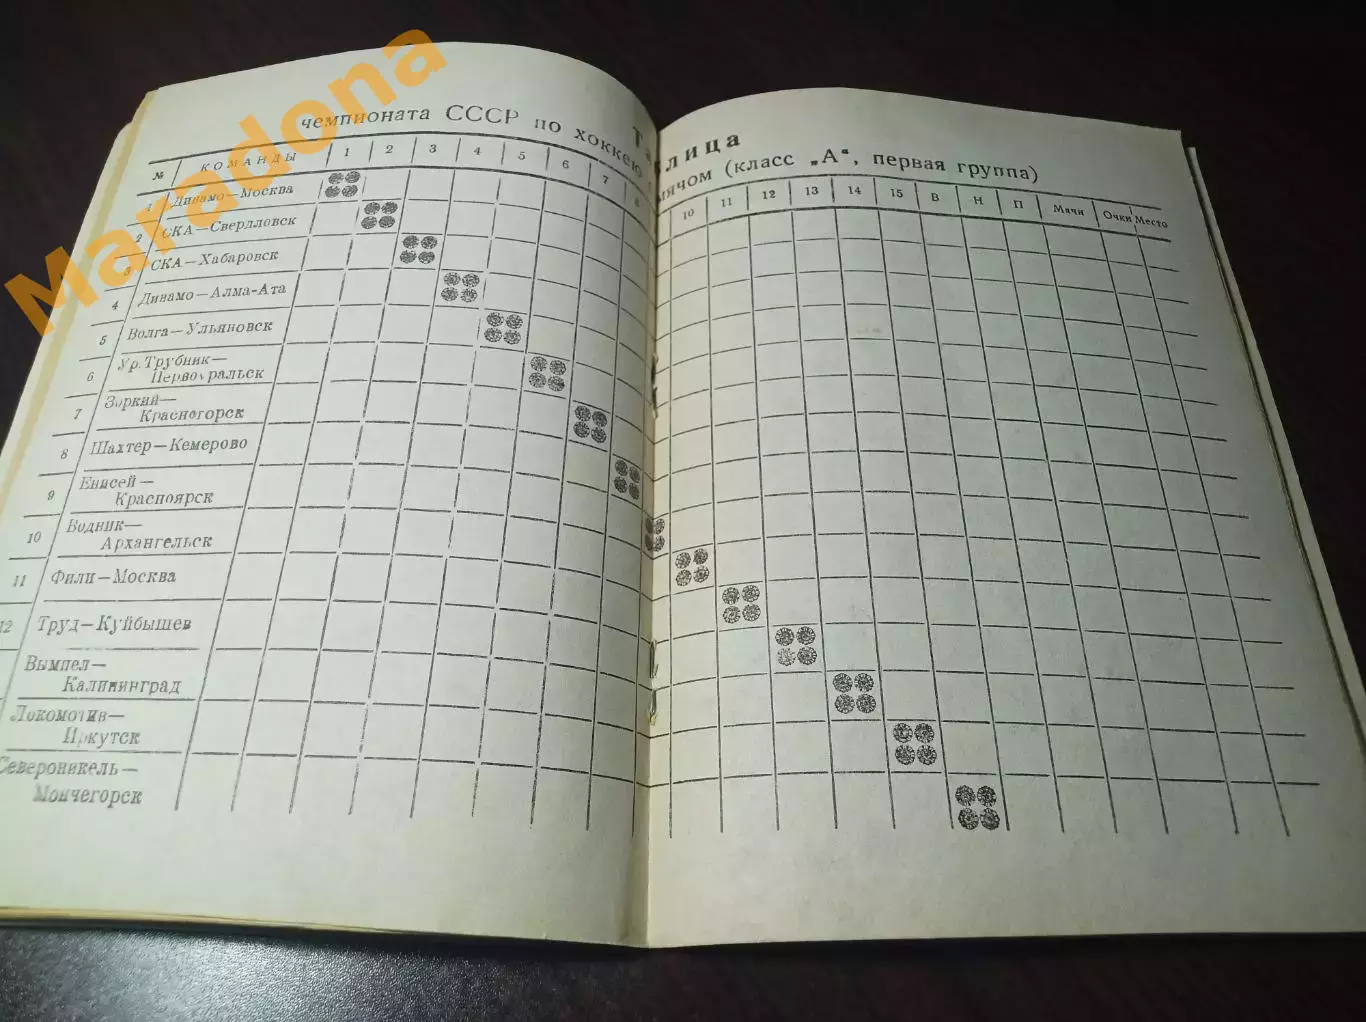 Maradona
Таблица
чемпионата СССР по хоккею с мячом (класс „А“, первая группа)
№ КОМАНДЫ 1 2 3 4 5 6 7 8 10 11 12 13 14 15 В Н П Мячи Очки Место
1 Динамо—Москва
2 СКА—Свердловск
3 СКА—Хабаровск
4 Динамо—Алма-Ата
5 Волга—Ульяновск
6 Ур.Трубник—
Первоуральск
7 Зоркий—
Красногорск
8 Шахтер—Кемерово
9 Енисей—
Красноярск
10 Водник—
Архангельск
11 Фили—Москва
12 Труд—Куйбышев
Вымпел—
Калининград
Локомотив—
Иркутск
Североникель—
Мончегорск